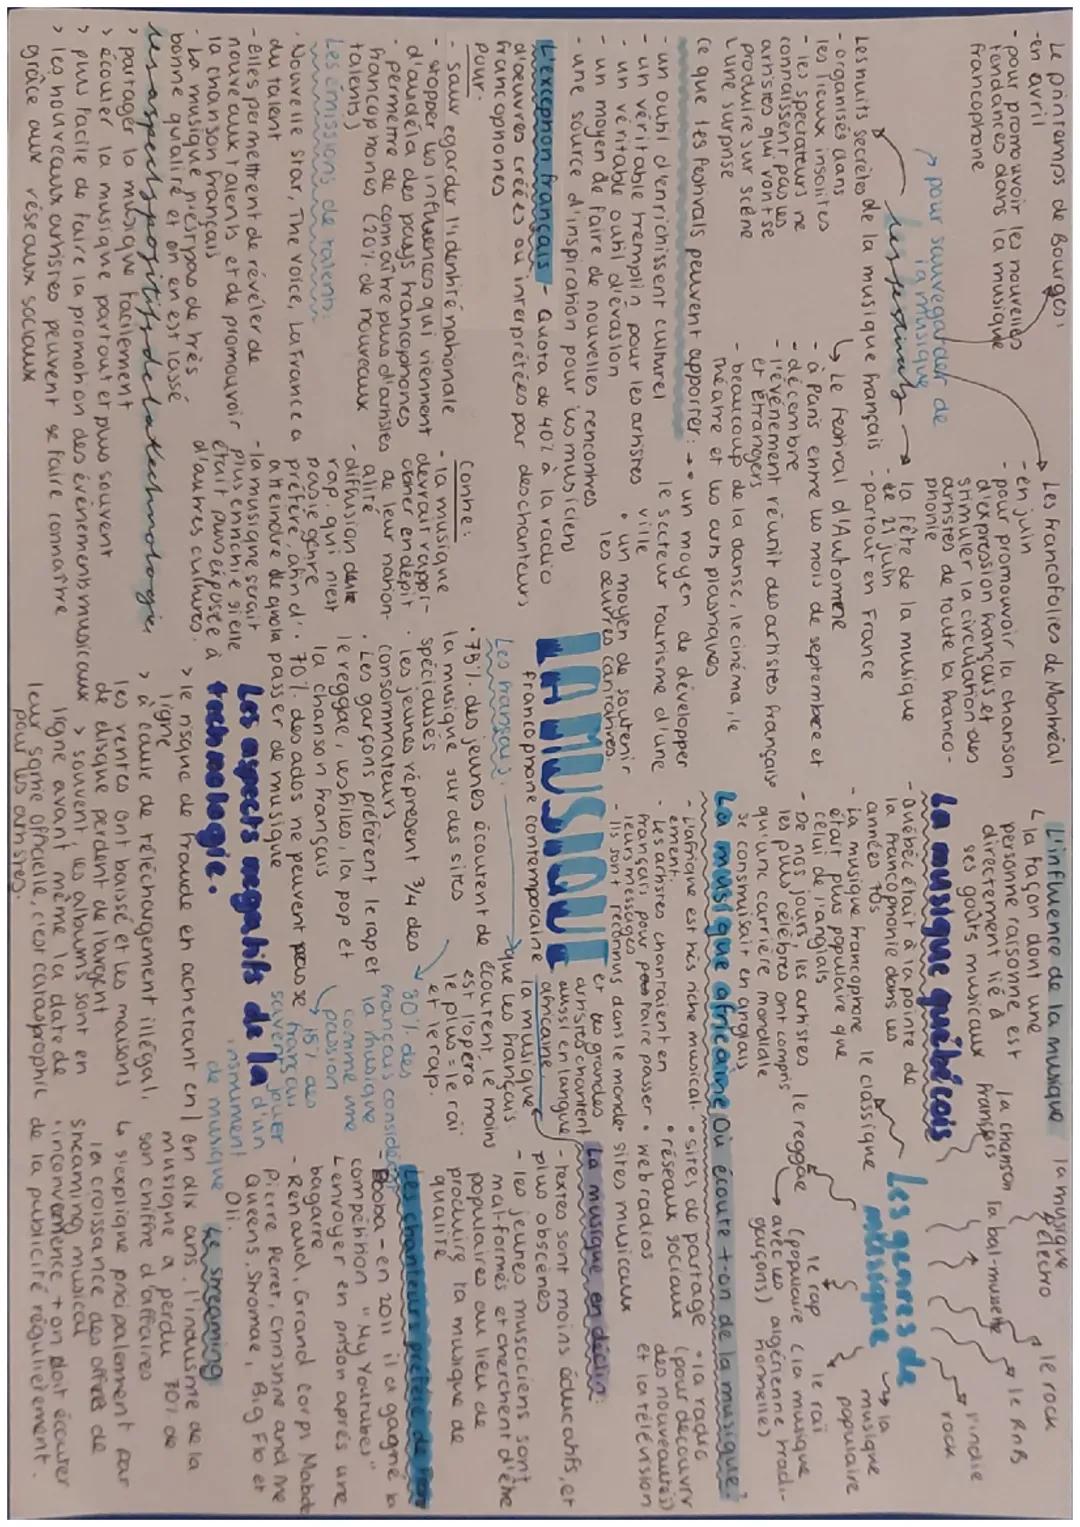 Le printemps de Bourges:
-en avril
- pour promouvoir les nouvelles
tendances dans la musique
francophone
> pour sauvegarder de
la musique
les festivals
Les Francofolies de Montréal
- en juin
- pour promouvoir la chanson
d'expression français et
stimuler la circulation des
artistes de toute la franco-
phonie
la fête de la musique
- le 21 juin
- partout en France
Les nuits secrètes de la musique français
- organisés dans
les lieux insolites
- les spectateurs ne
connaissent pas les
artistes qui vont se
produire sur scène
L'une surprise
Le festival d'Automne
- à Paris entre les mois de septembre et
décembre
- l'événement réunit des artistes français
et étrangers
- beaucoup de la danse, le cinéma, le
théatre et les arts plastiques
Ce que les festivals peuvent apporter:
- un outil d'enrichissent culturel
- un véritable tremplin pour les artistes
- un véritable outil d'évasion
- un moyen de faire de nouvelles rencontres
- une source d'inspiration pour les musiciens
• un moyen de développer
le secteur tourisme d'une
ville
• un moyen de soutenir
les œuvres caritatives.
L'exception français - Quota de 40% à la radio
d'oeuvres créées ou interprétées par des chanteurs
francophones
Pour:
- sauvegarder l'identité nationale
- stopper les influences qui viennent
d'audela des pays francophones
- permettre de connaître plus d'artistes
francophones (20% de nouveaux
talents)
Contre:
- la musique
devrait rappr-
ocher en dépit
de leur nation-
alité
- difusion de le
rap, qui n'est
pas le génre
préféré, afin d'
atteindre le quota
- la musique serait
plus enrichie si elle
était plus exposée à
d'autres cultures.
Les émissions de talents:
• Nouvelle Star, The Voice, La France a
du talent
- Elles permettent de révéler de
nouveaux talents et de promouvoir
la chanson français
- La musique n'est pas de très
bonne qualité et on en est lassé
les aspects positifs de la technologie
> partager la musique facilement
> écouter la musique partout et plus souvent
> plus facile de faire la promotion des événements musicaux
> les nouveaux artistes peuvent se faire connaître
grâce aux réseaux sociaux
LA MUSIQUE
francophone contemporaine
Les français:
• 79% des jeunes écoutent de
la musique sur des sites
spécialisés
• les jeunes répresent 3/4 des
consommateurs
• Les garçons préfèrent le rap et
le reggae, les filles, la pop et
la chanson français
• 70% des ados ne peuvent pas se
passer de musique
que les français
écoutent le moins
est l'opera
le plus = le raï
et le rap.
80% des
français considèrent
la musique
comme une
passion
15% des
français
savent jouer
d'un
instrument
de musique
Les aspects negatifs de la
technologie.
> le risque de fraude en achetant en
ligne
> à cause de téléchargement illégal,
les ventes ont baissé et les maisons
de disque perdent de l'argent
> souvent, les albums sont en
ligne avant même la date de
leur sortie officielle, c'est catastrophic
pour les artistes.
L'influence de la musique
la façon dont une
personne raisonne est
directement lié à
ses goûts musicaux
La musique québécois
- Québéc était à la pointe de
la francophonie dans les
années 70s
- La musique francophone
était plus populaire que
celui de l'anglais
- De nos jours, les artistes
les plus célèbres ont compris
qu'une carrière mondiale
se construisait en anglais
La musique africaine
- L'afrique est très riche musical-
ement.
- Les artistes chantaient en
français pour faire passer
leurs messages
- Ils sont réconnus dans le monde
et les grandes
artistes chantent
aussi en langue
africaine
Les genres de
musique
la musique
électro
le rock
le RnB
l'indie
rock
la
musique
populaire
le raï
(la musique
algérienne tradi-
tionnelle)
le rap
(populaire
avec les
garçons)
le reggae
le classique
la chanson
français
la bal-musette
Où écoute-t-on de la musique?
• sites de partage
• réseaux sociaux
• web radios
• sites musicaux
• la radio
(pour découvrir
des nouveautés)
et la télévision
La musique en déclin:
la musique
- textes sont moins éducatifs, et
plus obscènes
- les jeunes musiciens sont
mal-formés et cherchent d'être
populaires au lieu de
produire la musique de
qualité
Les chanteurs préféré
- Booba - en 2011 il a gagné la
compétition "My Youtubes"
L envoyer en prison après une
bagarre
- Renaud, Grand Corps Malade
Pierre Perret, Christine and the
Queens, Stromae, Big Flo et
Oli.
Le streaming
en dix ans, l'industrie de la
musique a perdu 70% de
son chiffre d'affaires
s'explique principalement par
la croissance des offres de
streaming musical
• inconvenience + on doit écouter
de la publicité régulièrement.